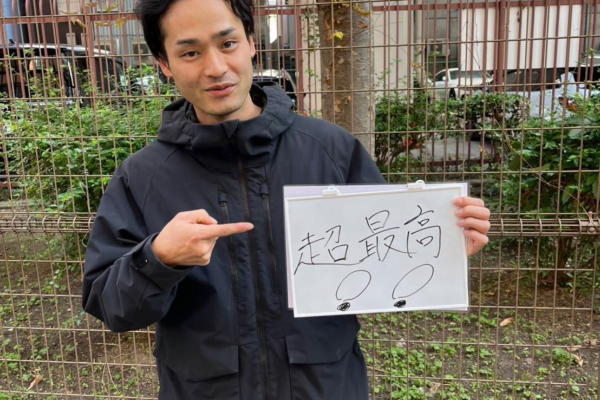 超最高!!